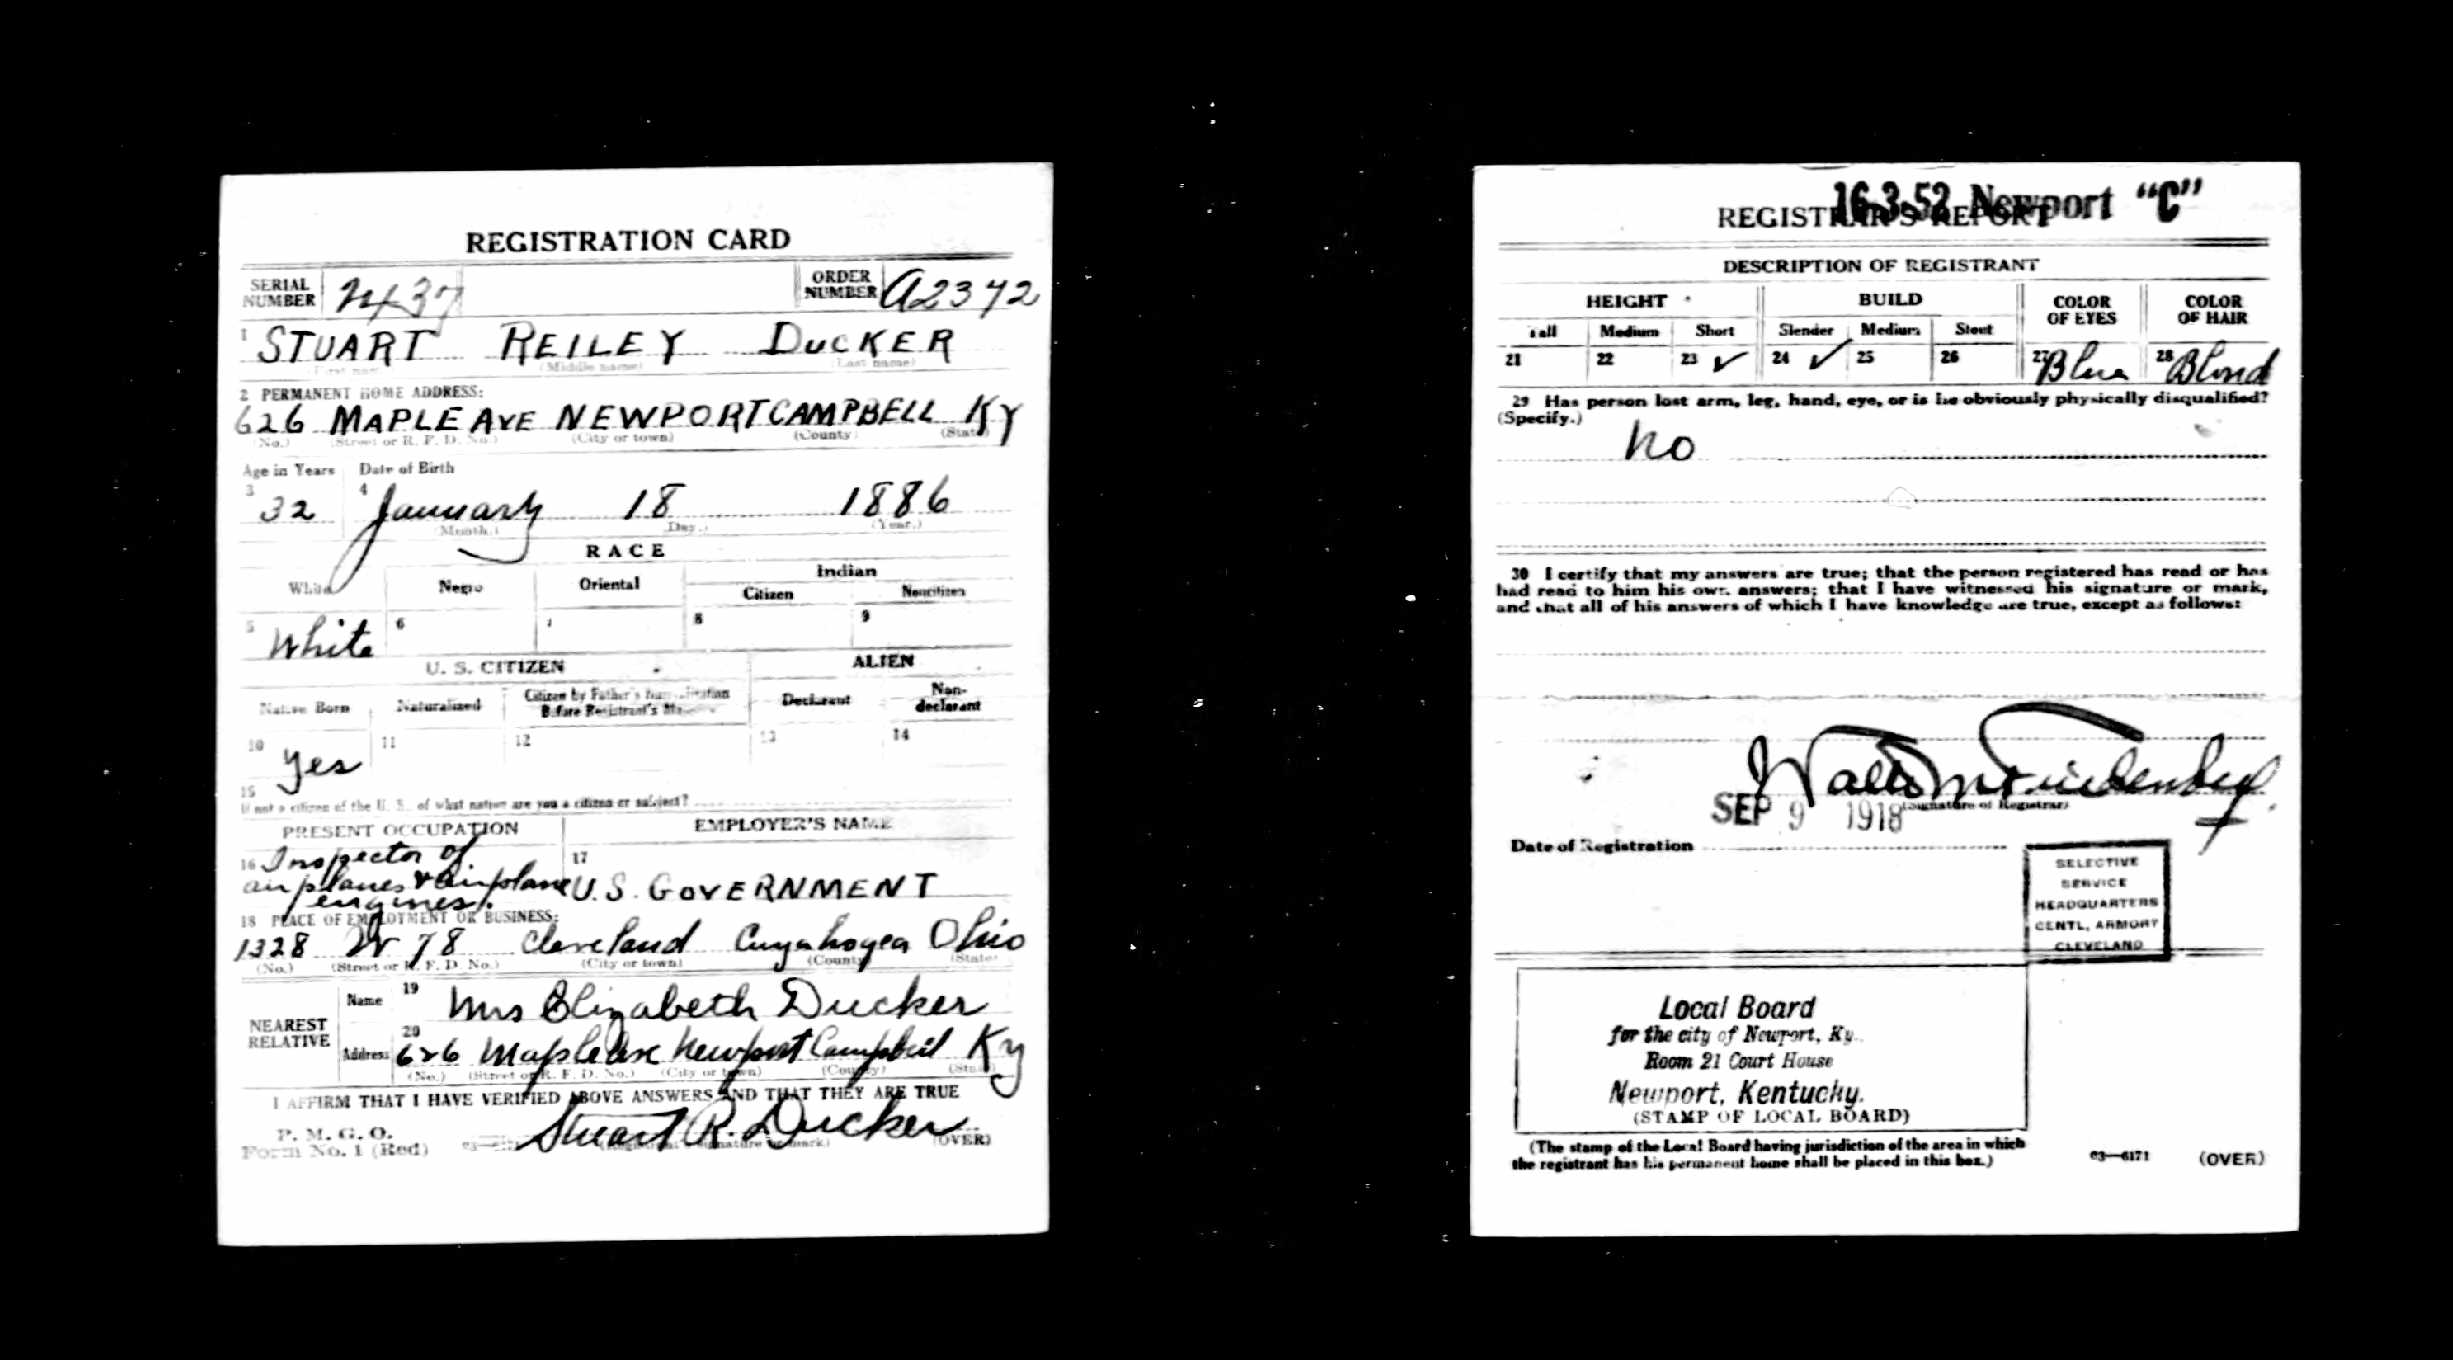 REGISTRATION CARD
SERIAL NUMBER 2437 ORDER NUMBER A2372
1 STUART REILEY DUCKER
(First name) (Middle name) (Last name)
2 PERMANENT HOME ADDRESS:
626 MAPLE AVE NEWPORT CAMPBELL KY
(No.) (Street or R. F. D. No.) (City or town) (County) (State)
Age in Years Date of Birth
3 32 4 January 18 1886
(Month.) (Day.) (Year.)
RACE
White Negro Oriental Indian
Citizen Noncitizen
5 White 6 7 8 9
U. S. CITIZEN ALIEN
Native Born Naturalized Citizen by Father's Naturalization Before Registrant's Declarant Non-declarant
10 Yes 11 12 13 14
15
If not a citizen of the U. S., of what nation are you a citizen or subject?
PRESENT OCCUPATION EMPLOYER'S NAME
16 Inspector of
airplanes & airplane
engines. 17 U.S. GOVERNMENT
18 PLACE OF EMPLOYMENT OR BUSINESS:
1328 W 78 Cleveland Cuyahogea Ohio
(No.) (Street or R. F. D. No.) (City or town) (County) (State)
NEAREST RELATIVE
Name 19 Mrs Elizabeth Ducker
Address 20 626 Maple Ave Newport Campbell Ky
(No.) (Street or R. F. D. No.) (City or town) (County) (State)
I AFFIRM THAT I HAVE VERIFIED ABOVE ANSWERS AND THAT THEY ARE TRUE
P. M. G. O.
Form No. 1 (Red) Stuart R. Ducker
(Registrant's signature or mark) (OVER)
16-3-52 Newport "C"
REGISTRAR'S REPORT
DESCRIPTION OF REGISTRANT
HEIGHT BUILD COLOR OF EYES COLOR OF HAIR
Tall Medium Short Slender Medium Stout
21 22 23 ✓ 24 ✓ 25 26 27 Blue 28 Blond
29 Has person lost arm, leg, hand, eye, or is he obviously physically disqualified?
(Specify.)
No
30 I certify that my answers are true; that the person registered has read or has
had read to him his own answers; that I have witnessed his signature or mark,
and that all of his answers of which I have knowledge are true, except as follows:
(Signature of Registrar)
SEP 9 1918
Date of Registration
SELECTIVE
SERVICE
HEADQUARTERS
CENTL. ARMORY
CLEVELAND
Local Board
for the city of Newport, Ky.
Room 21 Court House
Newport, Kentucky.
(STAMP OF LOCAL BOARD)
(The stamp of the Local Board having jurisdiction of the area in which
the registrant has his permanent home shall be placed in this box.)
03—6171 (OVER)